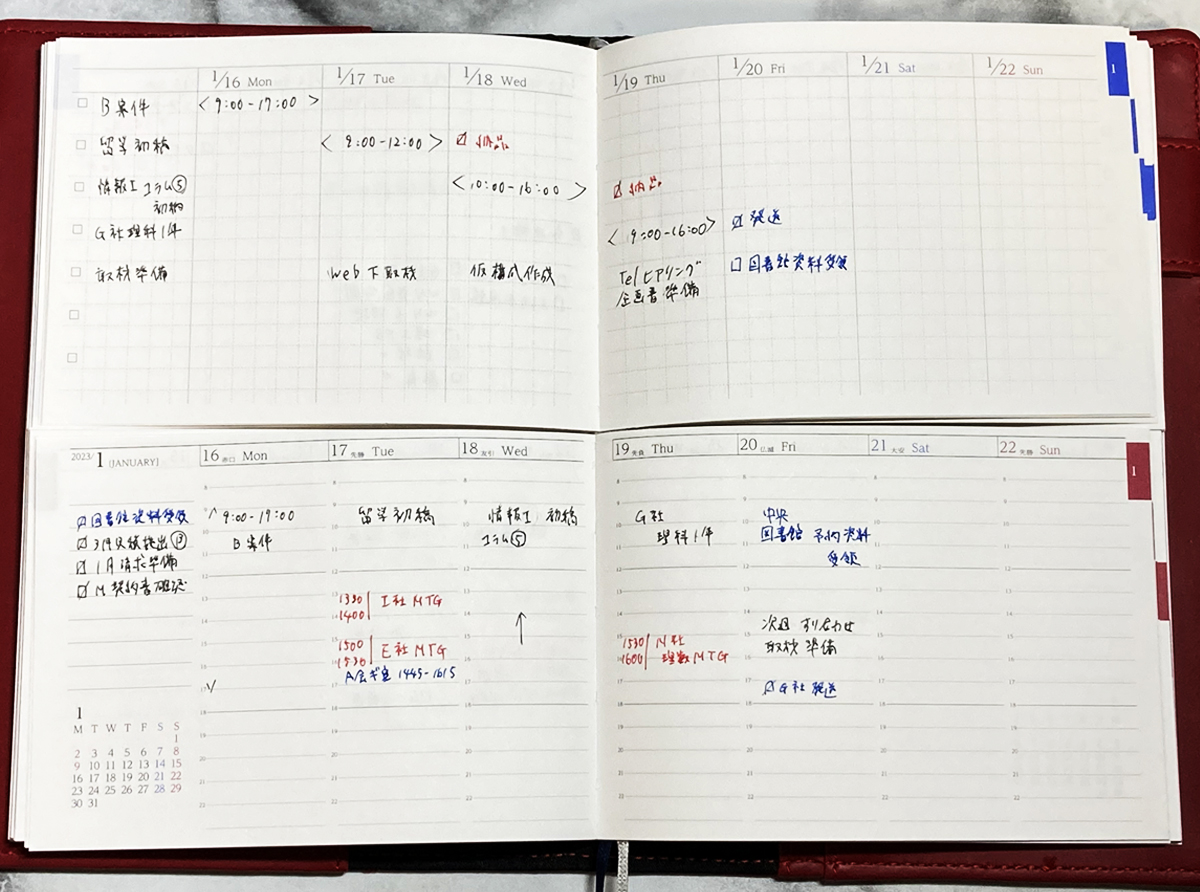 1/16 Mon 1/17 Tue 1/18 Wed 1/19 Thu 1/20 Fri 1/21 Sat 1/22 Sun
1
B案件 <9:00-17:00>
留学初稿 <9:00-12:00> 納品
情報I コラム⑤ <10:00-16:00> 納品
初稿
G社理科1年 <9:00-16:00> 発送
取材準備 Web下取材 仮構成作成 Telヒアリング 図書館資料受領
企画書準備
2023/1 [JANUARY] 16 赤口 Mon 17 先勝 Tue 18 友引 Wed 19 先負 Thu 20 仏滅 Fri 21 大安 Sat 22 先勝 Sun
1
図書館資料受領 9:00-17:00 留学初稿 情報I 初稿 G社 中央
提出 B案件 コラム⑤ 理科1年 図書館 予約資料
1月請求準備 受領
M 契約書確認
1330 I社MTG
1400
次週 すり合わせ
1500 E社MTG 1530 M社 取材準備
1530 1600 理数MTG
A会ギ室 1445-1615 G社発送
1
M T W T F S S
1
2 3 4 5 6 7 8
9 10 11 12 13 14 15
16 17 18 19 20 21 22
23 24 25 26 27 28 29
30 31